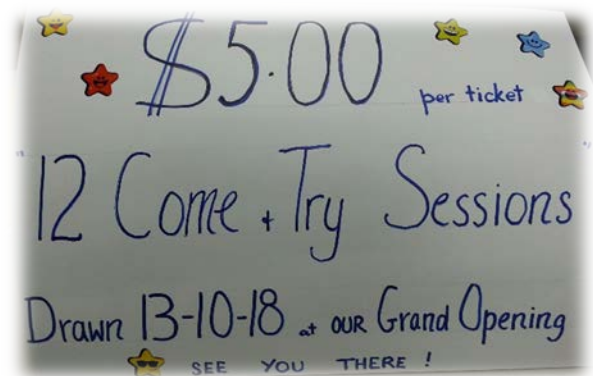 $5.00 per ticket
"12 Come + Try Sessions"
Drawn 13-10-18 at OUR Grand Opening
SEE YOU THERE !